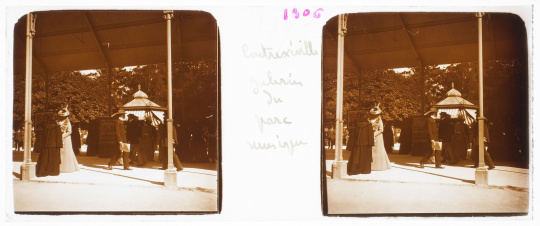 1906
Contrexéville
galerie
du
parc
musique